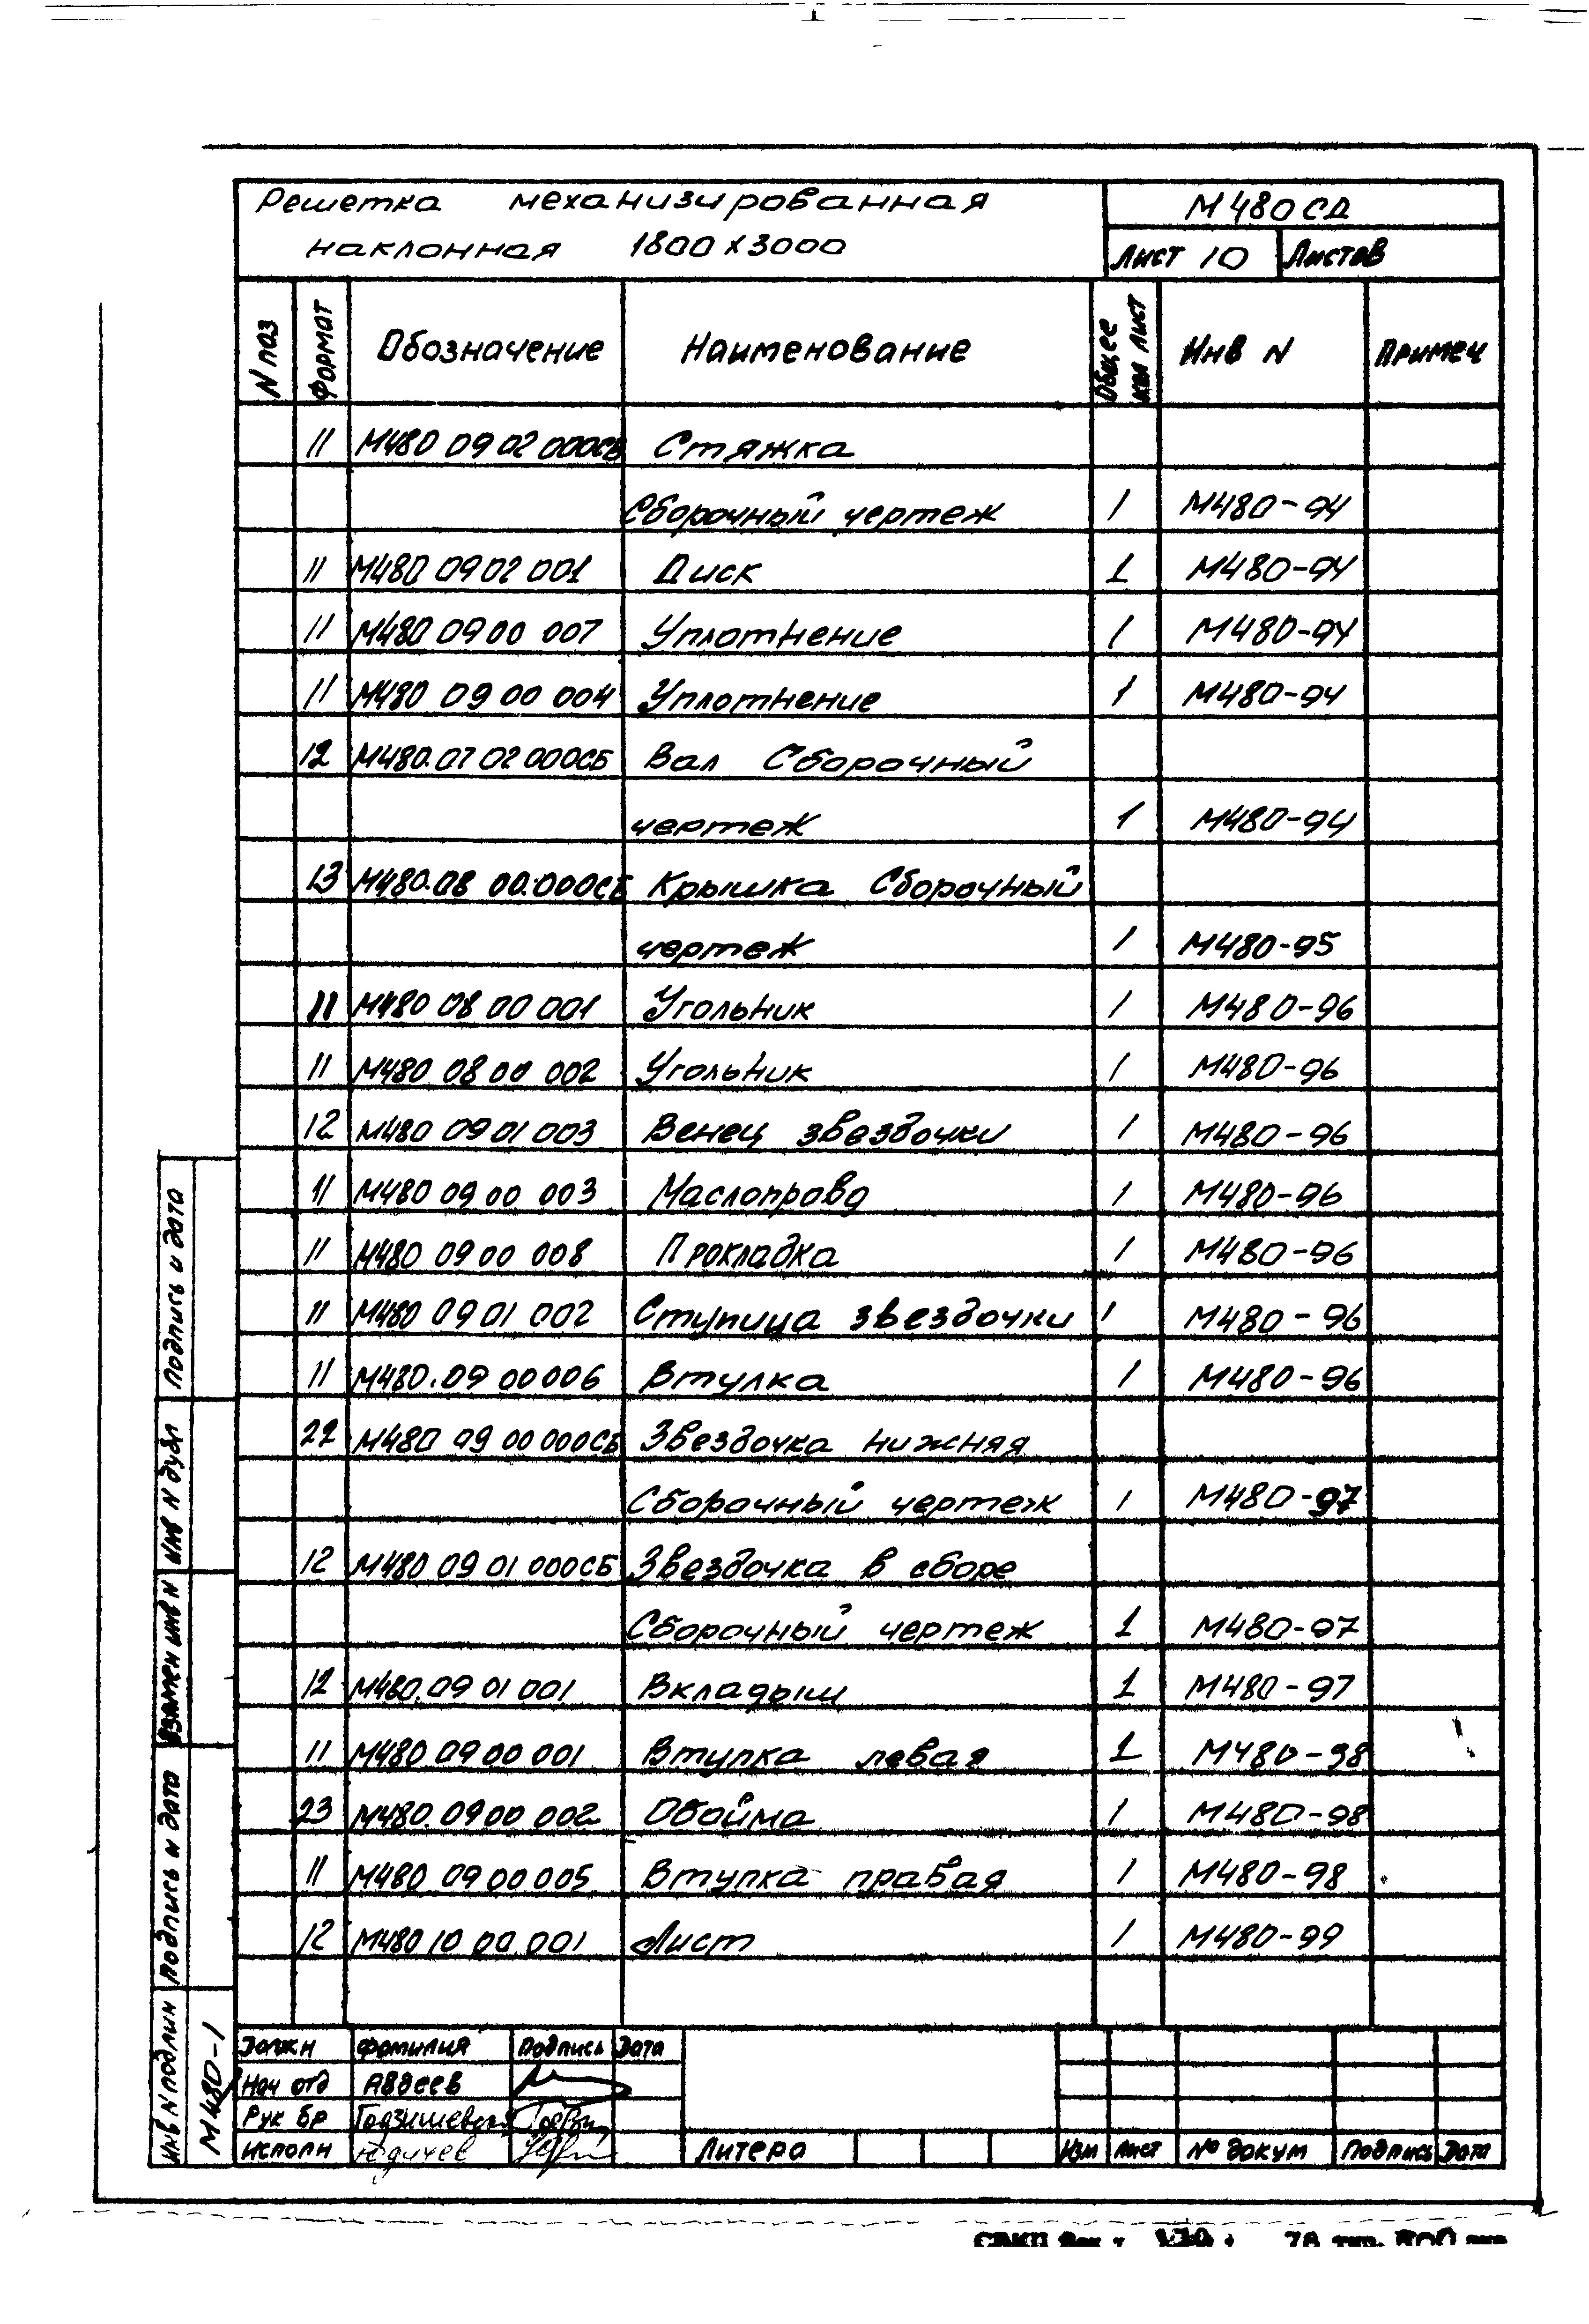 Решетка механизированная М480СД
наклонная 1800х3000 Лист 10 Листов
N паз Формат Обозначение Наименование Общее кол лист Инв N Примеч
11 М480 09 02 000СБ Стяжка
Сборочный чертеж 1 М480-94
11 М480 09 02 001 Диск 1 М480-94
11 М480 09 00 007 Уплотнение 1 М480-94
11 М480 09 00 004 Уплотнение 1 М480-94
12 М480.07 02 000СБ Вал Сборочный
чертеж 1 М480-94
13 М480.08 00.000СБ Крышка Сборочный
чертеж 1 М480-95
11 М480 08 00 001 Угольник 1 М480-96
11 М480 08 00 002 Угольник 1 М480-96
12 М480 09 01 003 Венец звездочки 1 М480-96
11 М480 09 00 003 Маслопровд 1 М480-96
11 М480 09 00 008 Прокладка 1 М480-96
11 М480 09 01 002 Ступица звездочки 1 М480-96
11 М480.09 00 006 Втулка 1 М480-96
22 М480 09 00 000СБ Звездочка нижняя
Сборочный чертеж 1 М480-97
12 М480 09 01 000СБ Звездочка в сборе
Сборочный чертеж 1 М480-97
12 М480.09 01 001 Вкладыш 1 М480-97
11 М480.09 00 001 Втулка левая 1 М480-98
23 М480.09 00 002 Обойма 1 М480-98
11 М480 09 00.005 Втулка правая 1 М480-98
12 М480 10 00 001 Лист 1 М480-99
Должн Фамилия Подпись Дата
Нач отд Авдеев
Рук бр
Исполн Юдичев Литера Изм Лист № докум Подпись Дата
Подпись и дата
Инв N дубл
Взамен инв N
Подпись и дата
Инв N подлин М480-1